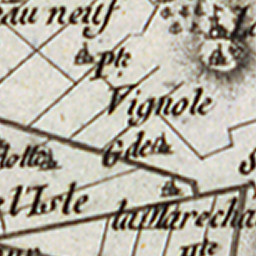 au neuf
Pte
Vignole
Gde
l'Isle
la Marecha